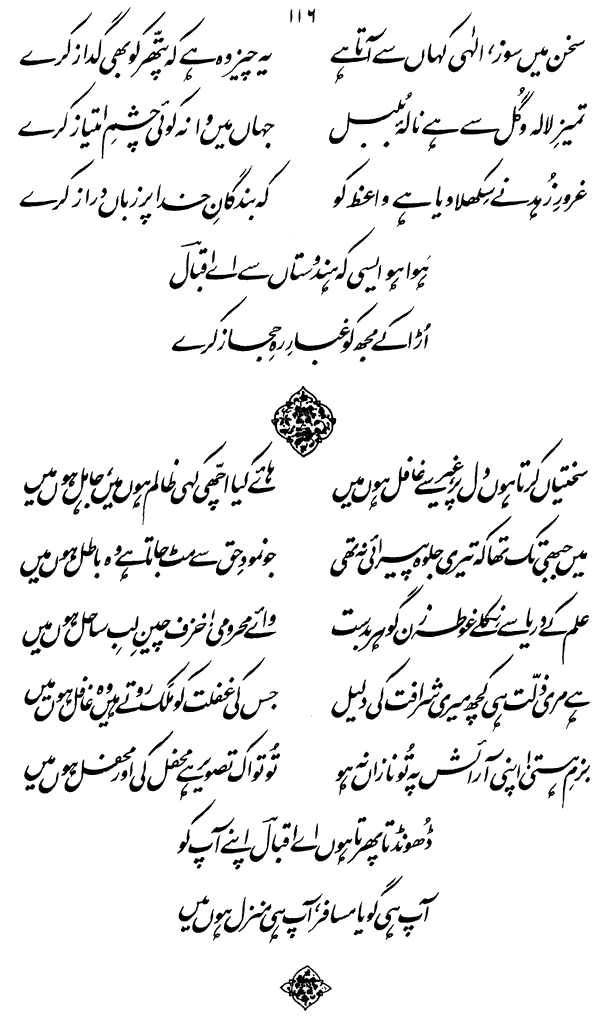 ۱۱۶
سخن میں سوز، الٰہی کہاں سے آتا ہے یہ چیز وہ ہے کہ پتھّر کو بھی گداز کرے
تمیزِ لالہ و گُل سے ہے نالۂ بُلبل جہاں میں وا نہ کوئی چشمِ امتیاز کرے
غرورِ زُہد نے سِکھلا دیا ہے واعظ کو کہ بندگانِ خدا پر زباں دراز کرے
ہوا ہو ایسی کہ ہندوستاں سے اے اقبالؔ
اُڑا کے مجھ کو غبارِ رہِ حجاز کرے
سختیاں کرتا ہوں دل پر، غیر سے غافل ہوں میں ہائے کیا اچھّی کہی ظالم ہوں میں، جاہل ہوں میں
میں جبھی تک تھا کہ تیری جلوہ پیرائی نہ تھی جو نمودِ حق سے مٹ جاتا ہے وہ باطل ہوں میں
علم کے دریا سے نِکلے غوطہ زن گوہر بدست وائے محرومی! خزف چینِ لبِ ساحل ہوں میں
ہے مری ذلّت ہی کچھ میری شرافت کی دلیل جس کی غفلت کو مَلک روتے ہیں وہ غافل ہوں میں
بزمِ ہستی! اپنی آرائش پہ تُو نازاں نہ ہو تُو تو اک تصویر ہے محفل کی اور محفل ہوں میں
ڈھُونڈتا پھرتا ہوں اے اقبالؔ اپنے آپ کو
آپ ہی گویا مسافر، آپ ہی منزل ہوں میں